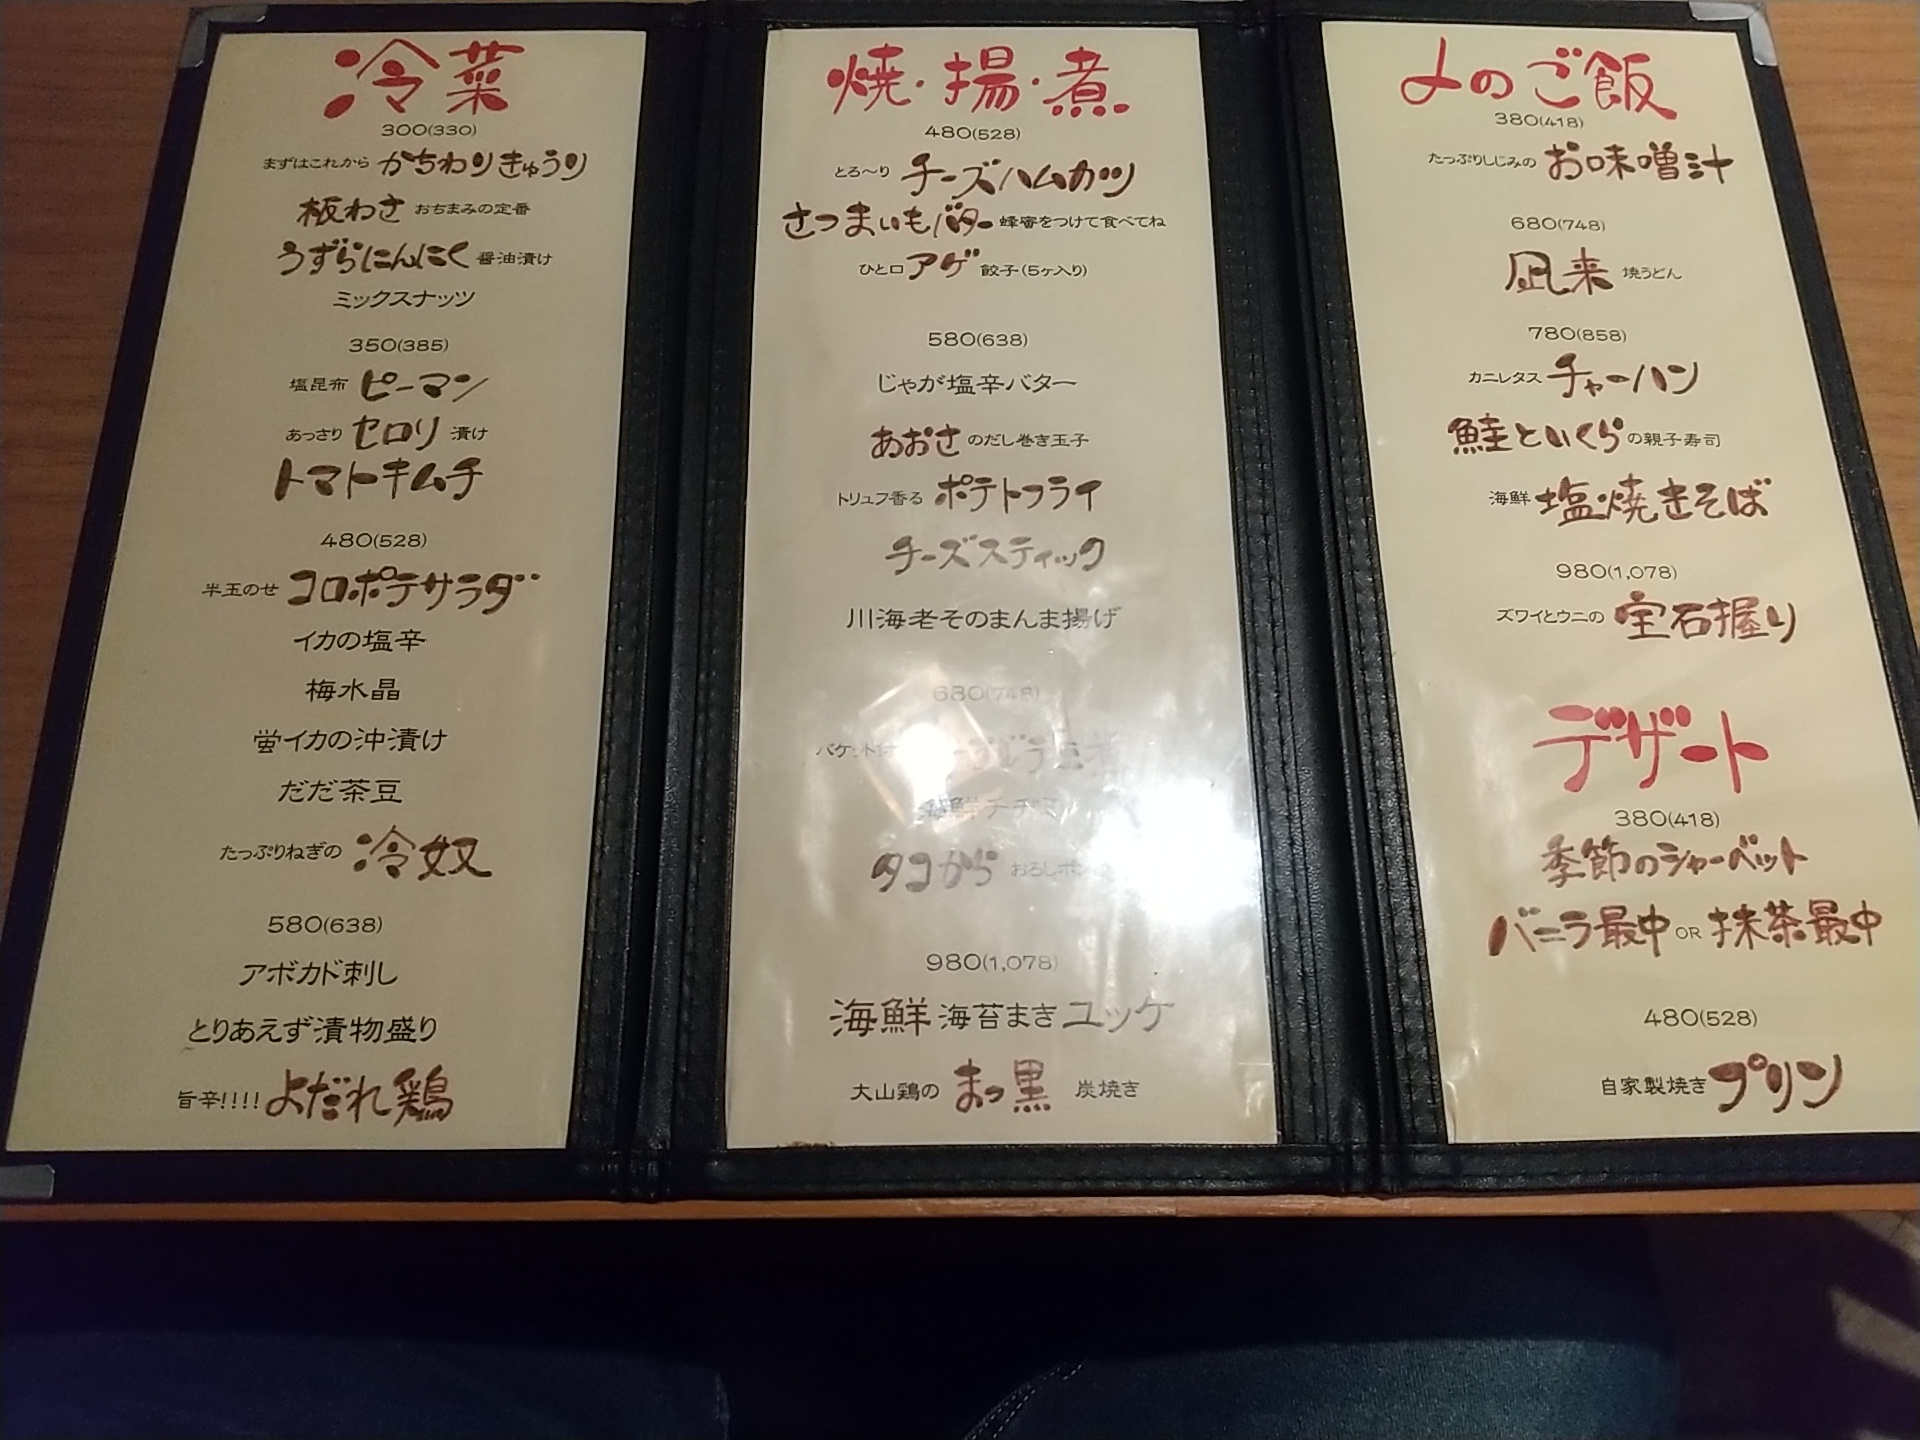 冷菜
300(330)
まずはこれから かちわりきゅうり
板わさ おちまみの定番
うずらにんにく 醤油漬け
ミックスナッツ
350(385)
塩昆布 ピーマン
あっさり セロリ 漬け
トマトキムチ
480(528)
半玉のせ コロポテサラダ
イカの塩辛
梅水晶
蛍イカの沖漬け
だだ茶豆
たっぷりねぎの 冷奴
580(638)
アボカド刺し
とりあえず漬物盛り
旨辛!!!! よだれ鶏
焼・揚・煮
480(528)
とろ〜り チーズハムカツ
さつまいもバター 蜂蜜をつけて食べてね
ひと口 アゲ 餃子(5ヶ入り)
580(638)
じゃが塩辛バター
あおさ のだし巻き玉子
トリュフ香る ポテトフライ
チーズスティック
川海老そのまんま揚げ
680(748)
バケット付
海鮮チヂミ
タコから おろしポン
980(1,078)
海鮮 海苔まき ユッケ
大山鶏の まっ黒 炭焼き
〆のご飯
380(418)
たっぷりしじみの お味噌汁
680(748)
凪来 焼うどん
780(858)
カニレタス チャーハン
鮭といくら の親子寿司
海鮮 塩焼きそば
980(1,078)
ズワイとウニの 宝石握り
デザート
380(418)
季節のシャーベット
バニラ最中 OR 抹茶最中
480(528)
自家製焼き プリン